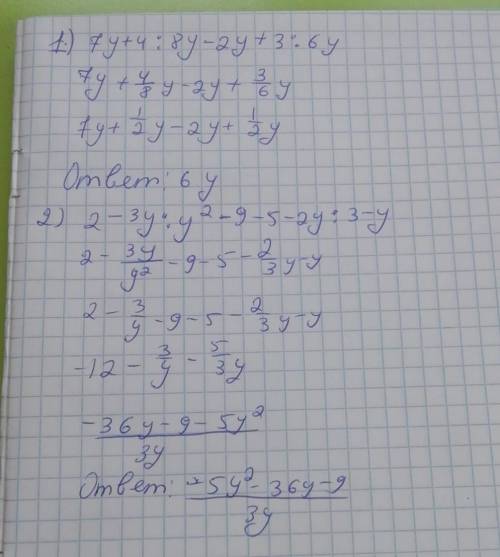 1.) 7y+4:8y-2y+3:6y
7y+4/8y-2y+3/6y
7y+1/2y-2y+1/2y
Ответ: 6y
2) 2-3y:y²-9-5-2y:3-y
2-3y/y²-9-5-2/3y-y
2-3/y-9-5-2/3y-y
-12-3/y-5/3y
-36y-9-5y²/3y
Ответ: -5y²-36y-9/3y